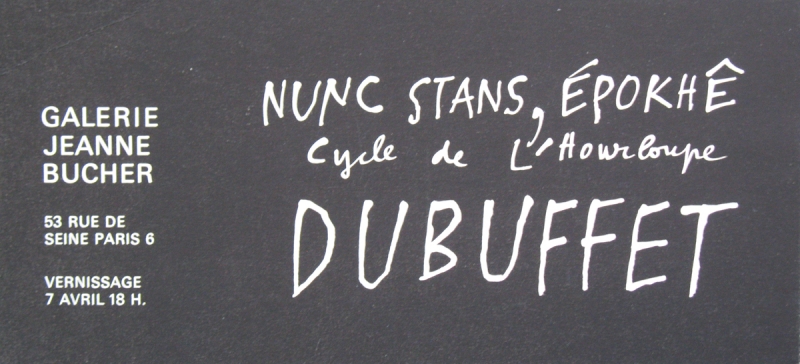 GALERIE
JEANNE
BUCHER
53 RUE DE
SEINE PARIS 6
VERNISSAGE
7 AVRIL 18 H.
NUNC STANS, ÉPOKHÊ
Cycle de L'Hourloupe
DUBUFFET